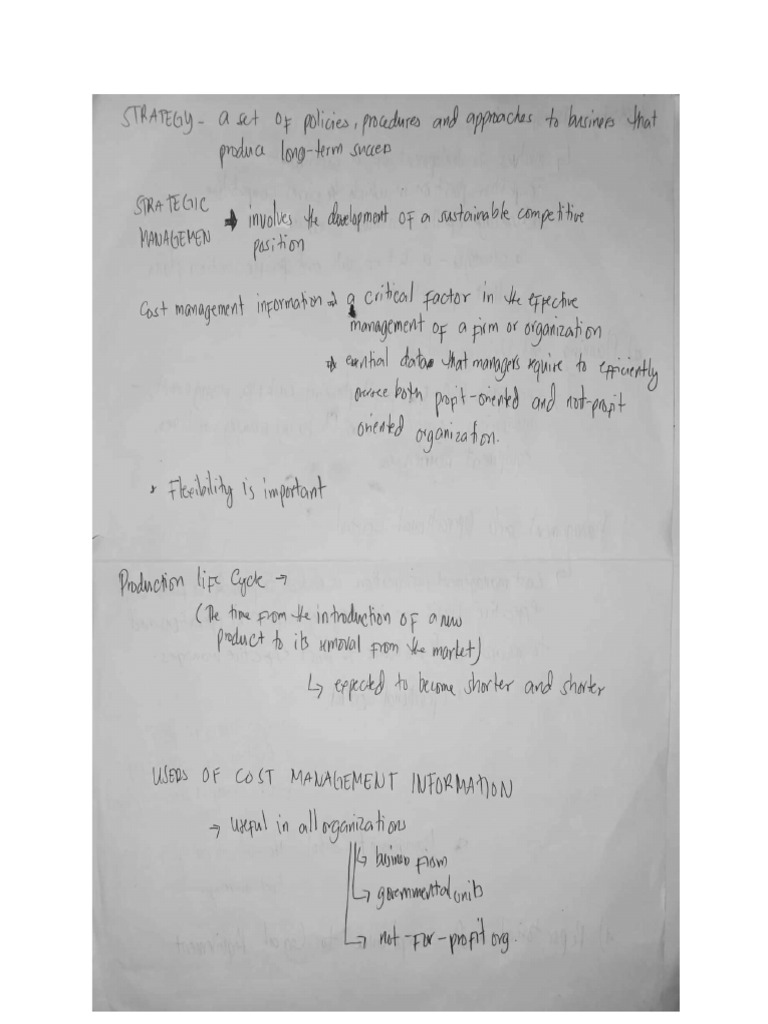 STRATEGY - a set of policies, procedures and approaches to business that
produce long-term success
STRATEGIC
MANAGEMEN → involves the development of a sustainable competitive
position
Cost management information → a critical factor in the effective
management of a firm or organization
→ essential data that managers require to efficiently
oversee both profit-oriented and not-profit
oriented organization.
* Flexibility is important
Production life Cycle →
(The time from the introduction of a new
product to its removal from the market)
↳ expected to become shorter and shorter
USERS OF COST MANAGEMENT INFORMATION
→ useful in all organizations
↳ business firm
↳ governmental units
↳ not-for-profit org.